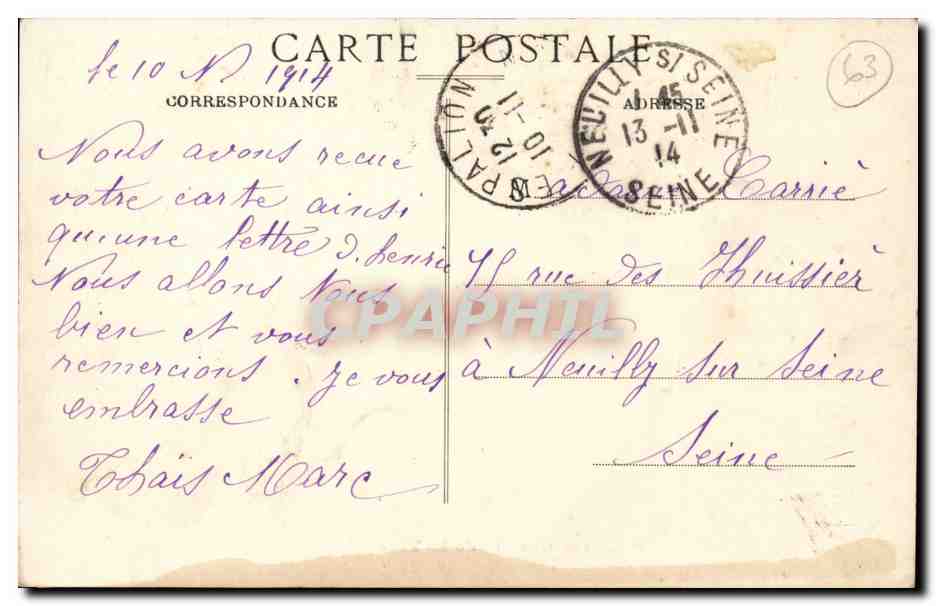 CARTE POSTALE
le 10 N 1914
CORRESPONDANCE
ADRESSE
63
ESPALION
12 30
10 -11
NEUILLY S/ SEINE
1 45
13 -11
14
SEINE
Nous avons recue
votre carte ainsi
qu'une lettre d. henri
Nous allons Nous
bien et vous
remercions. Je vous
embrasse
Thaïs Marc
Madame Carriè
rue des Jhuissièr
à Neuilly sur Seine
Seine
CPAPHIL